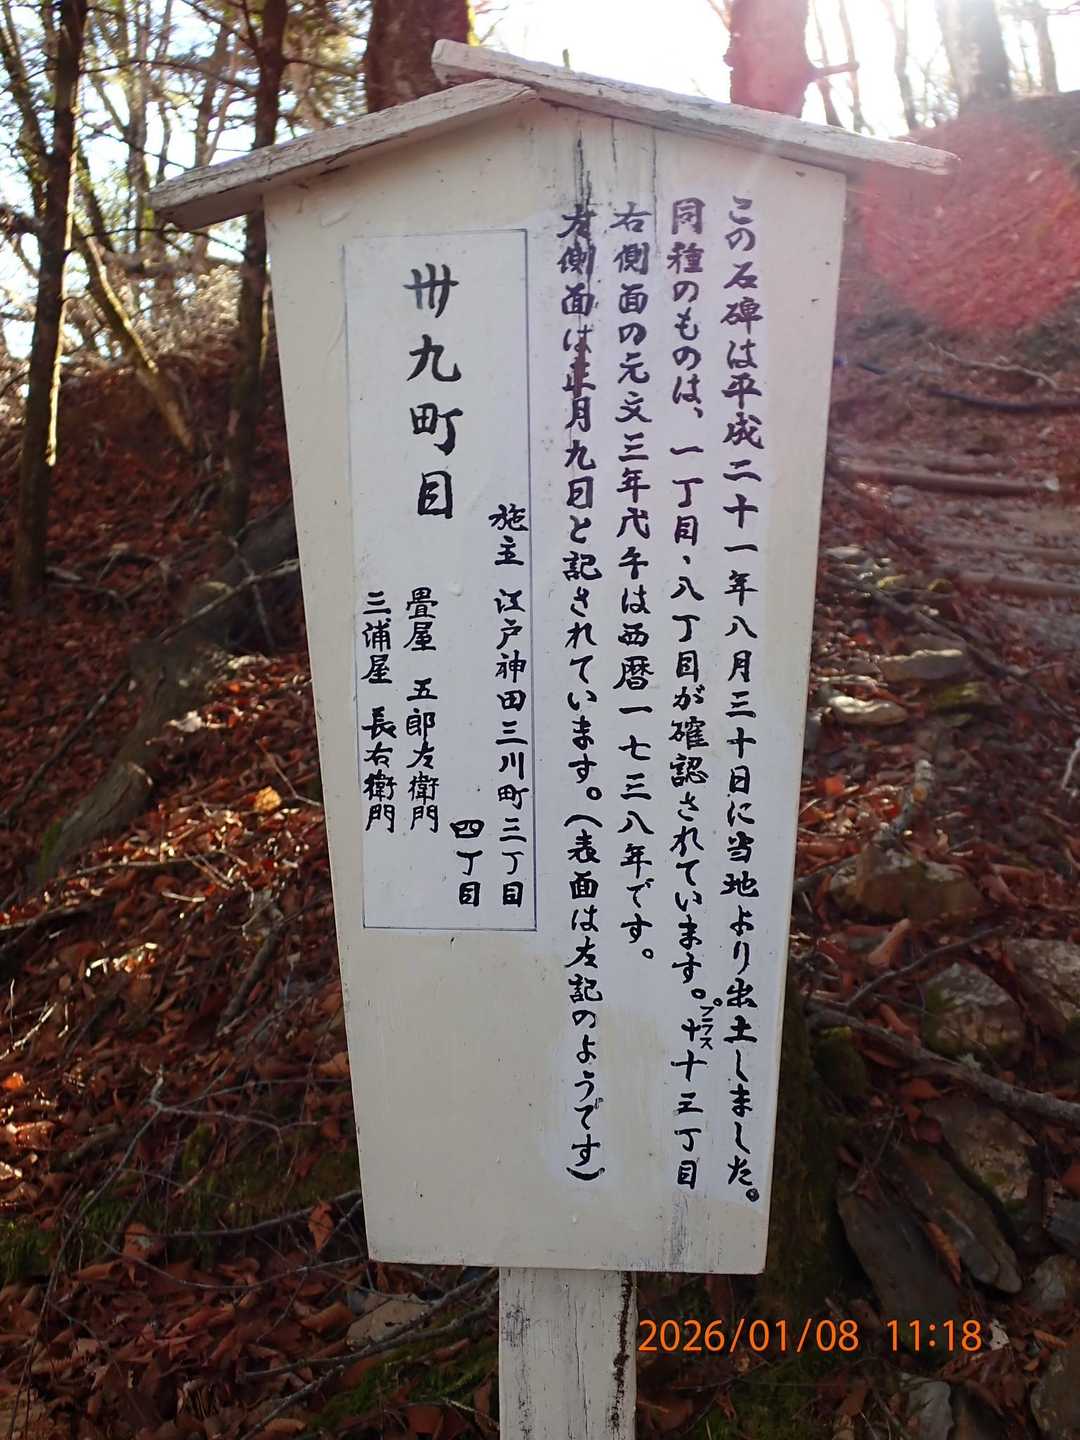 この石碑は平成二十一年八月三十日に当地より出土しました。
同種のものは、一丁目、八丁目が確認されています。
プラス
十十三丁目
右側面の元文三年戊午は西暦一七三八年です。
左側面は正月九日と記されています。(表面は左記のようです)
施主 江戸神田三川町三丁目
四丁目
卅九町目
畳屋 五郎左衛門
三浦屋 長右衛門
2026/01/08 11:18